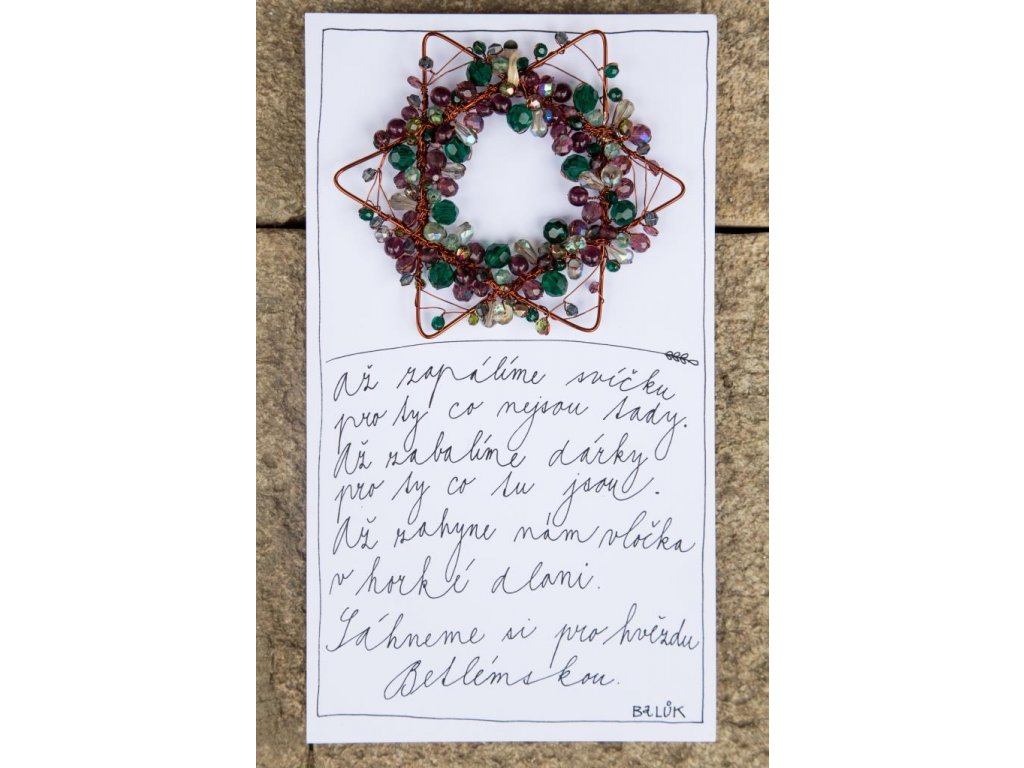 Až zapálíme svíčku
pro ty co nejsou tady.
Až zabalíme dárky
pro ty co tu jsou.
Až zahyne nám vločka
v horké dlani.
Sáhneme si pro hvězdu
Betlémskou.
BZLŮK